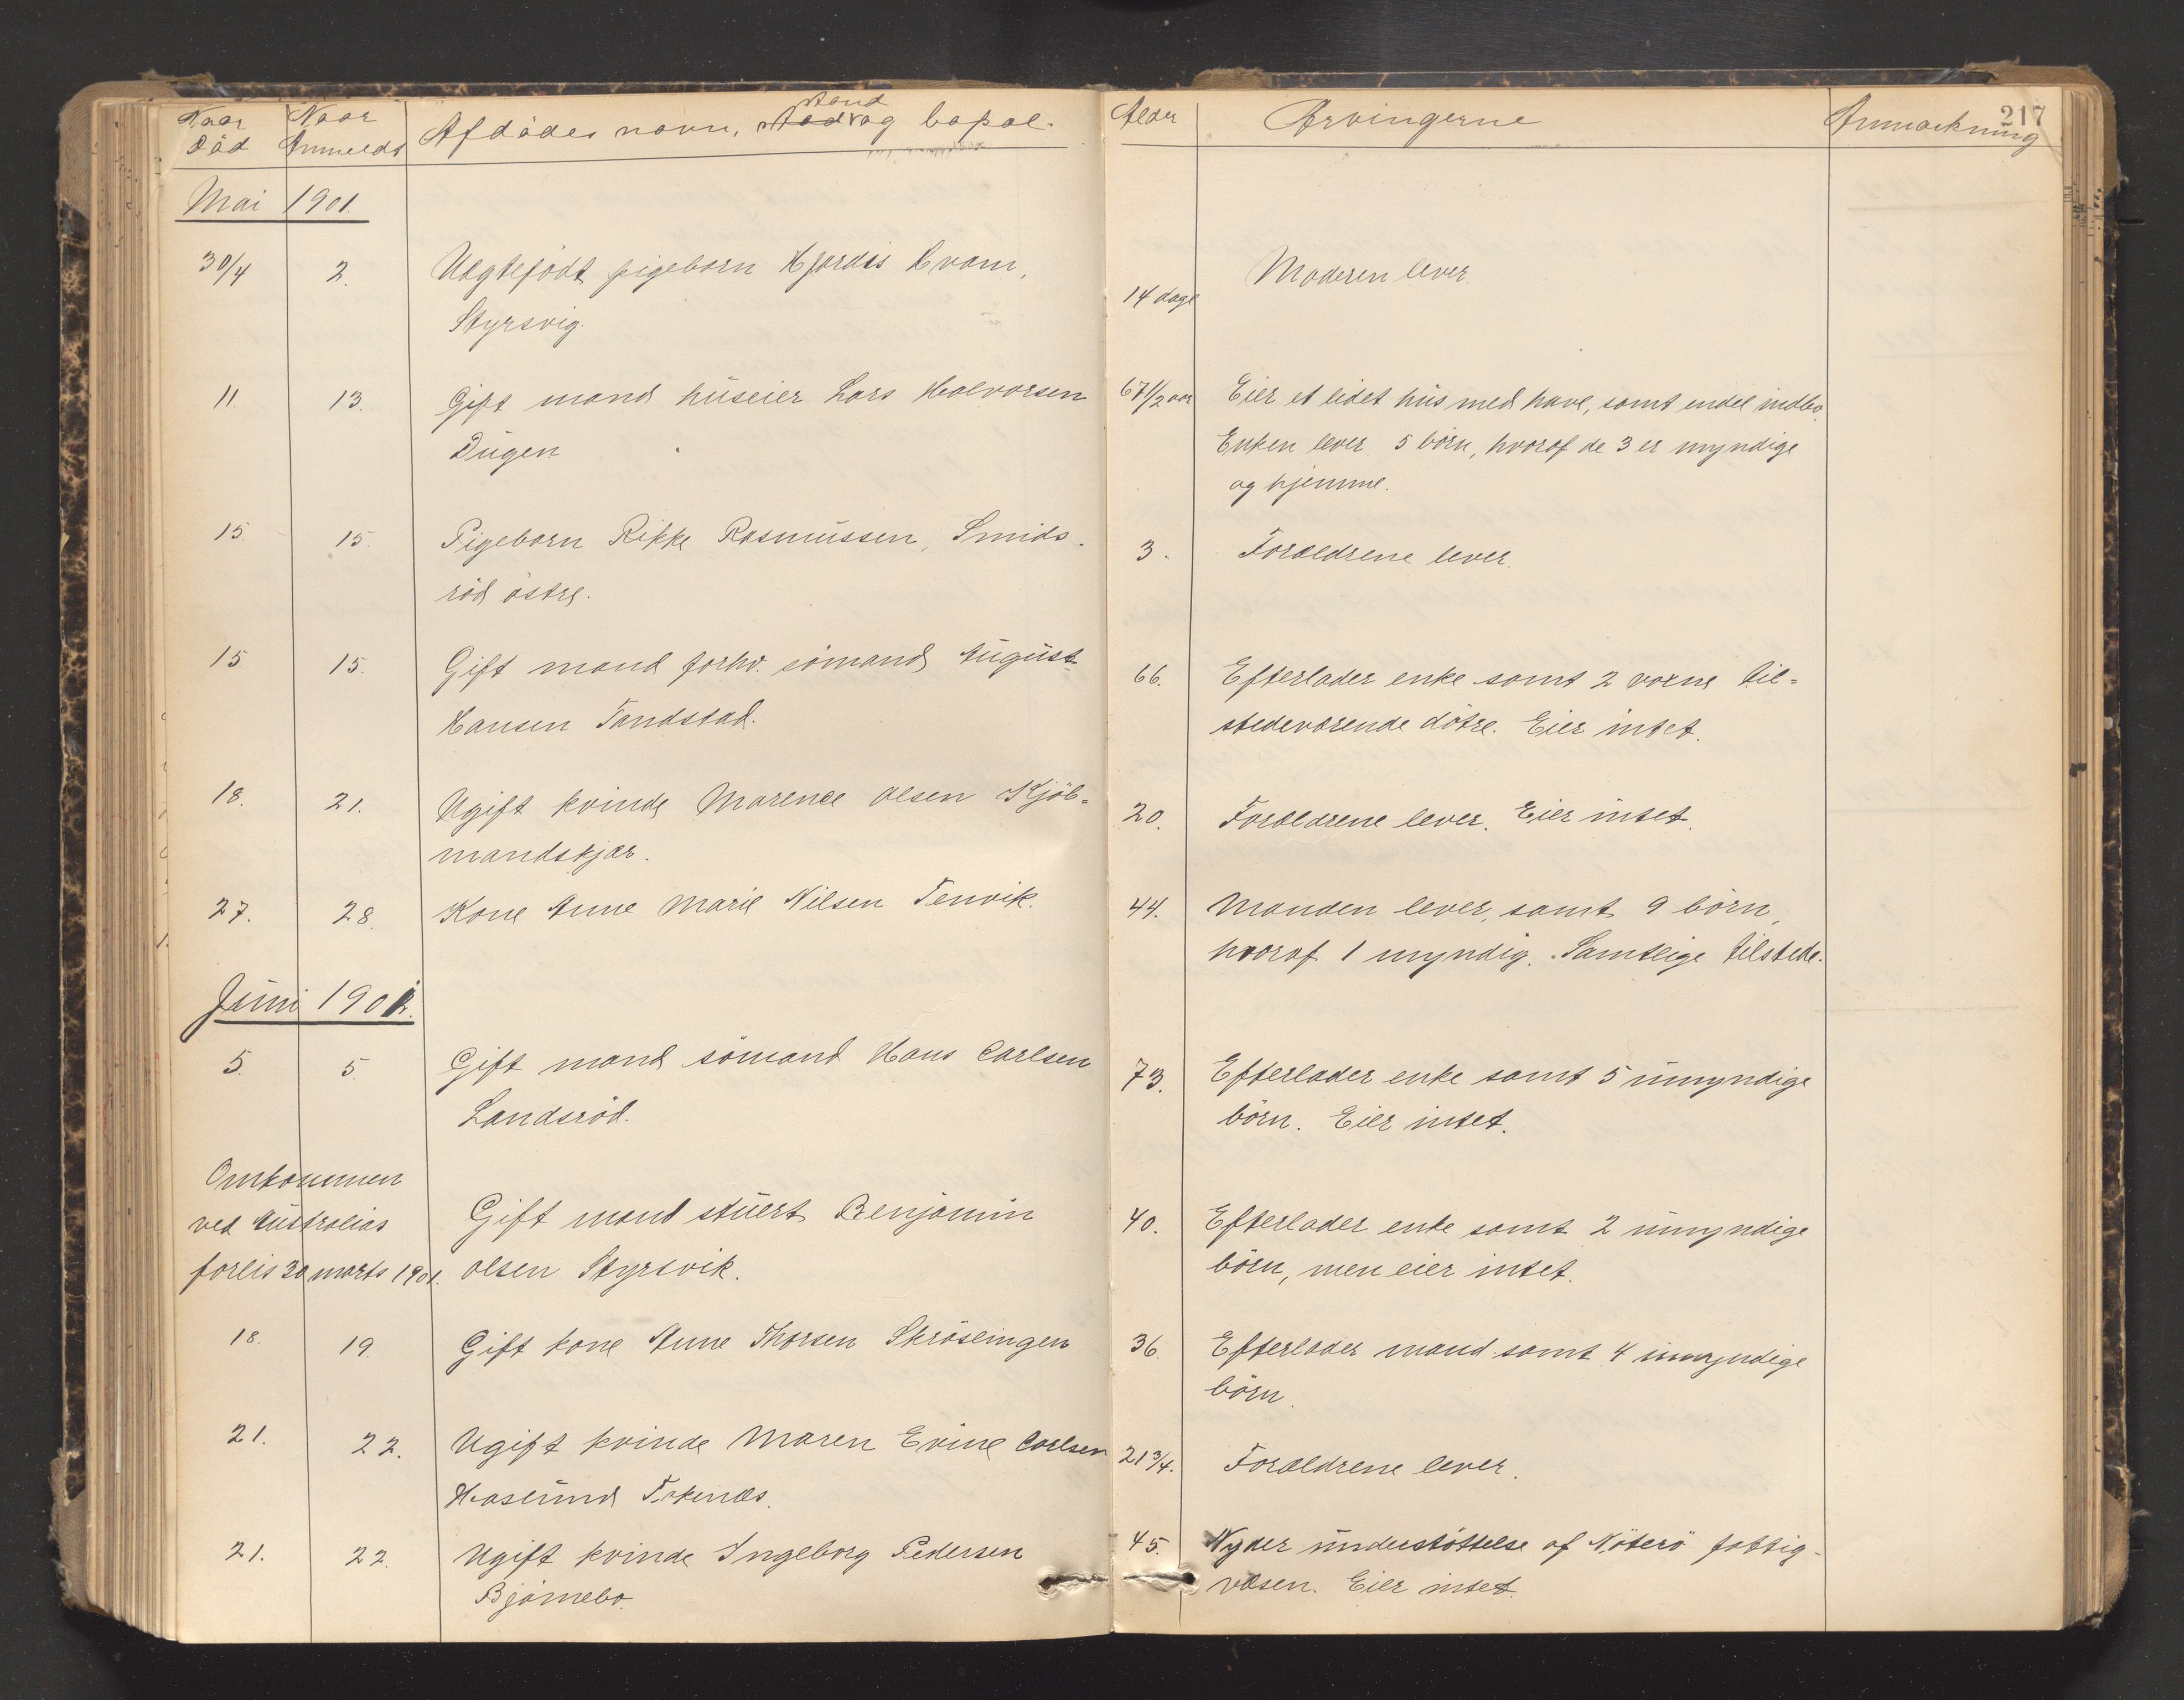 217
Naar Död | Naar Anmeldt | Afdödes navn, stand og bopæl. | Alder | Arvingerne | Anmærkning
Mai 1901.
30/4 | 2. | Uægtefödt pigebarn Hjørdis Kvam, | Moderen lever.
Styrsvig. | 14 dage
11. | 13. | Gift mand huseier Lars Halvorsen | 67 1/2 aar | Eier et lidet hus med have, samt endel indbo.
Dugen | Enken lever 5 börn, hvoraf de 3 er myndige
og hjemme.
15. | 15. | Pigebarn Rikke Rasmussen, Smids- | 3. | Forældrene lever.
röd östre.
15 | 15. | Gift mand forhv. sömand August | 66. | Efterlader enke samt 2 voxne til-
Hansen Tandstad. | stedeværende dötre. Eier intet.
18. | 21. | Ugift kvinde Marence Olsen Kjöb- | 20. | Forældrene lever. Eier intet.
mandskjær.
27. | 28. | Kone Anne Marie Nilsen Tenvik. | 44. | Manden lever, samt 9 börn,
hvoraf 1 myndig. Samtlige tilstede.
Juni 1901.
5. | 5. | Gift mand sömand Hans Carlsen | 73. | Efterlader enke samt 5 umyndige
Landsröd. | börn. Eier intet.
Omkommen
ved Australias | Gift mand stuert Benjamin | 40. | Efterlader enke samt 2 umyndige
forlis 30 marts 1901. | Olsen Styrsvik. | börn, men eier intet.
18. | 19. | Gift kone Anne Thorsen Skröslingen | 36. | Efterlader mand samt 4 umyndige
börn.
21. | 22. | Ugift kvinde Maren Evine Carlsen | 21 3/4. | Forældrene lever.
Haslund
21. | 22. | Ugift kvinde Ingeborg Pedersen | 45. | Nyder understöttelse af Nöterö fattig-
Bjørnebo. | væsen. Eier intet.